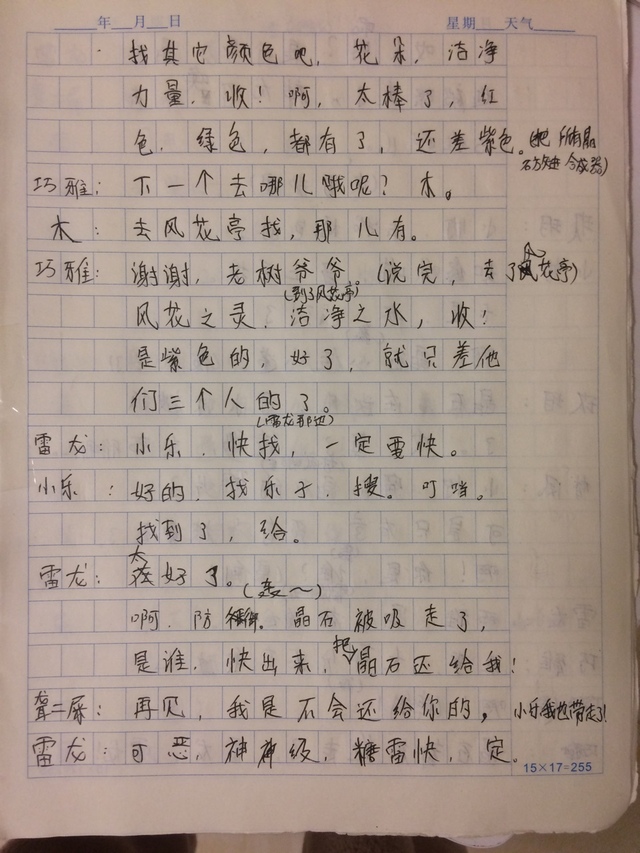 年 月 日 星期 天气
找其它颜色吧，花朵，洁净
力量，收！啊，太棒了，红
色，绿色，都有了，还差紫色。(把所有晶
石放进合成器)
巧雅：下一个去哪儿哦呢？木。
木：去风花亭找，那儿有。
巧雅：谢谢，老树爷爷。(说完，去了风花亭)
(到了风花亭)
风花之灵，洁净之水，收！
是紫色的，好了，就只差他
们三个人的了。
(雷龙那边)
雷龙：小乐，快找，一定要快。
小乐：好的，找乐子，搜。叮当。
找到了，给。
雷龙：太好了。
(轰～)
啊，防御。晶石被吸走了，
是谁，快出来，把晶石还给我！
聋二屎：再见，我是不会还给你的，小乐我也带走了！
雷龙：可恶，神神级，糖雷快，定。
15×17=255